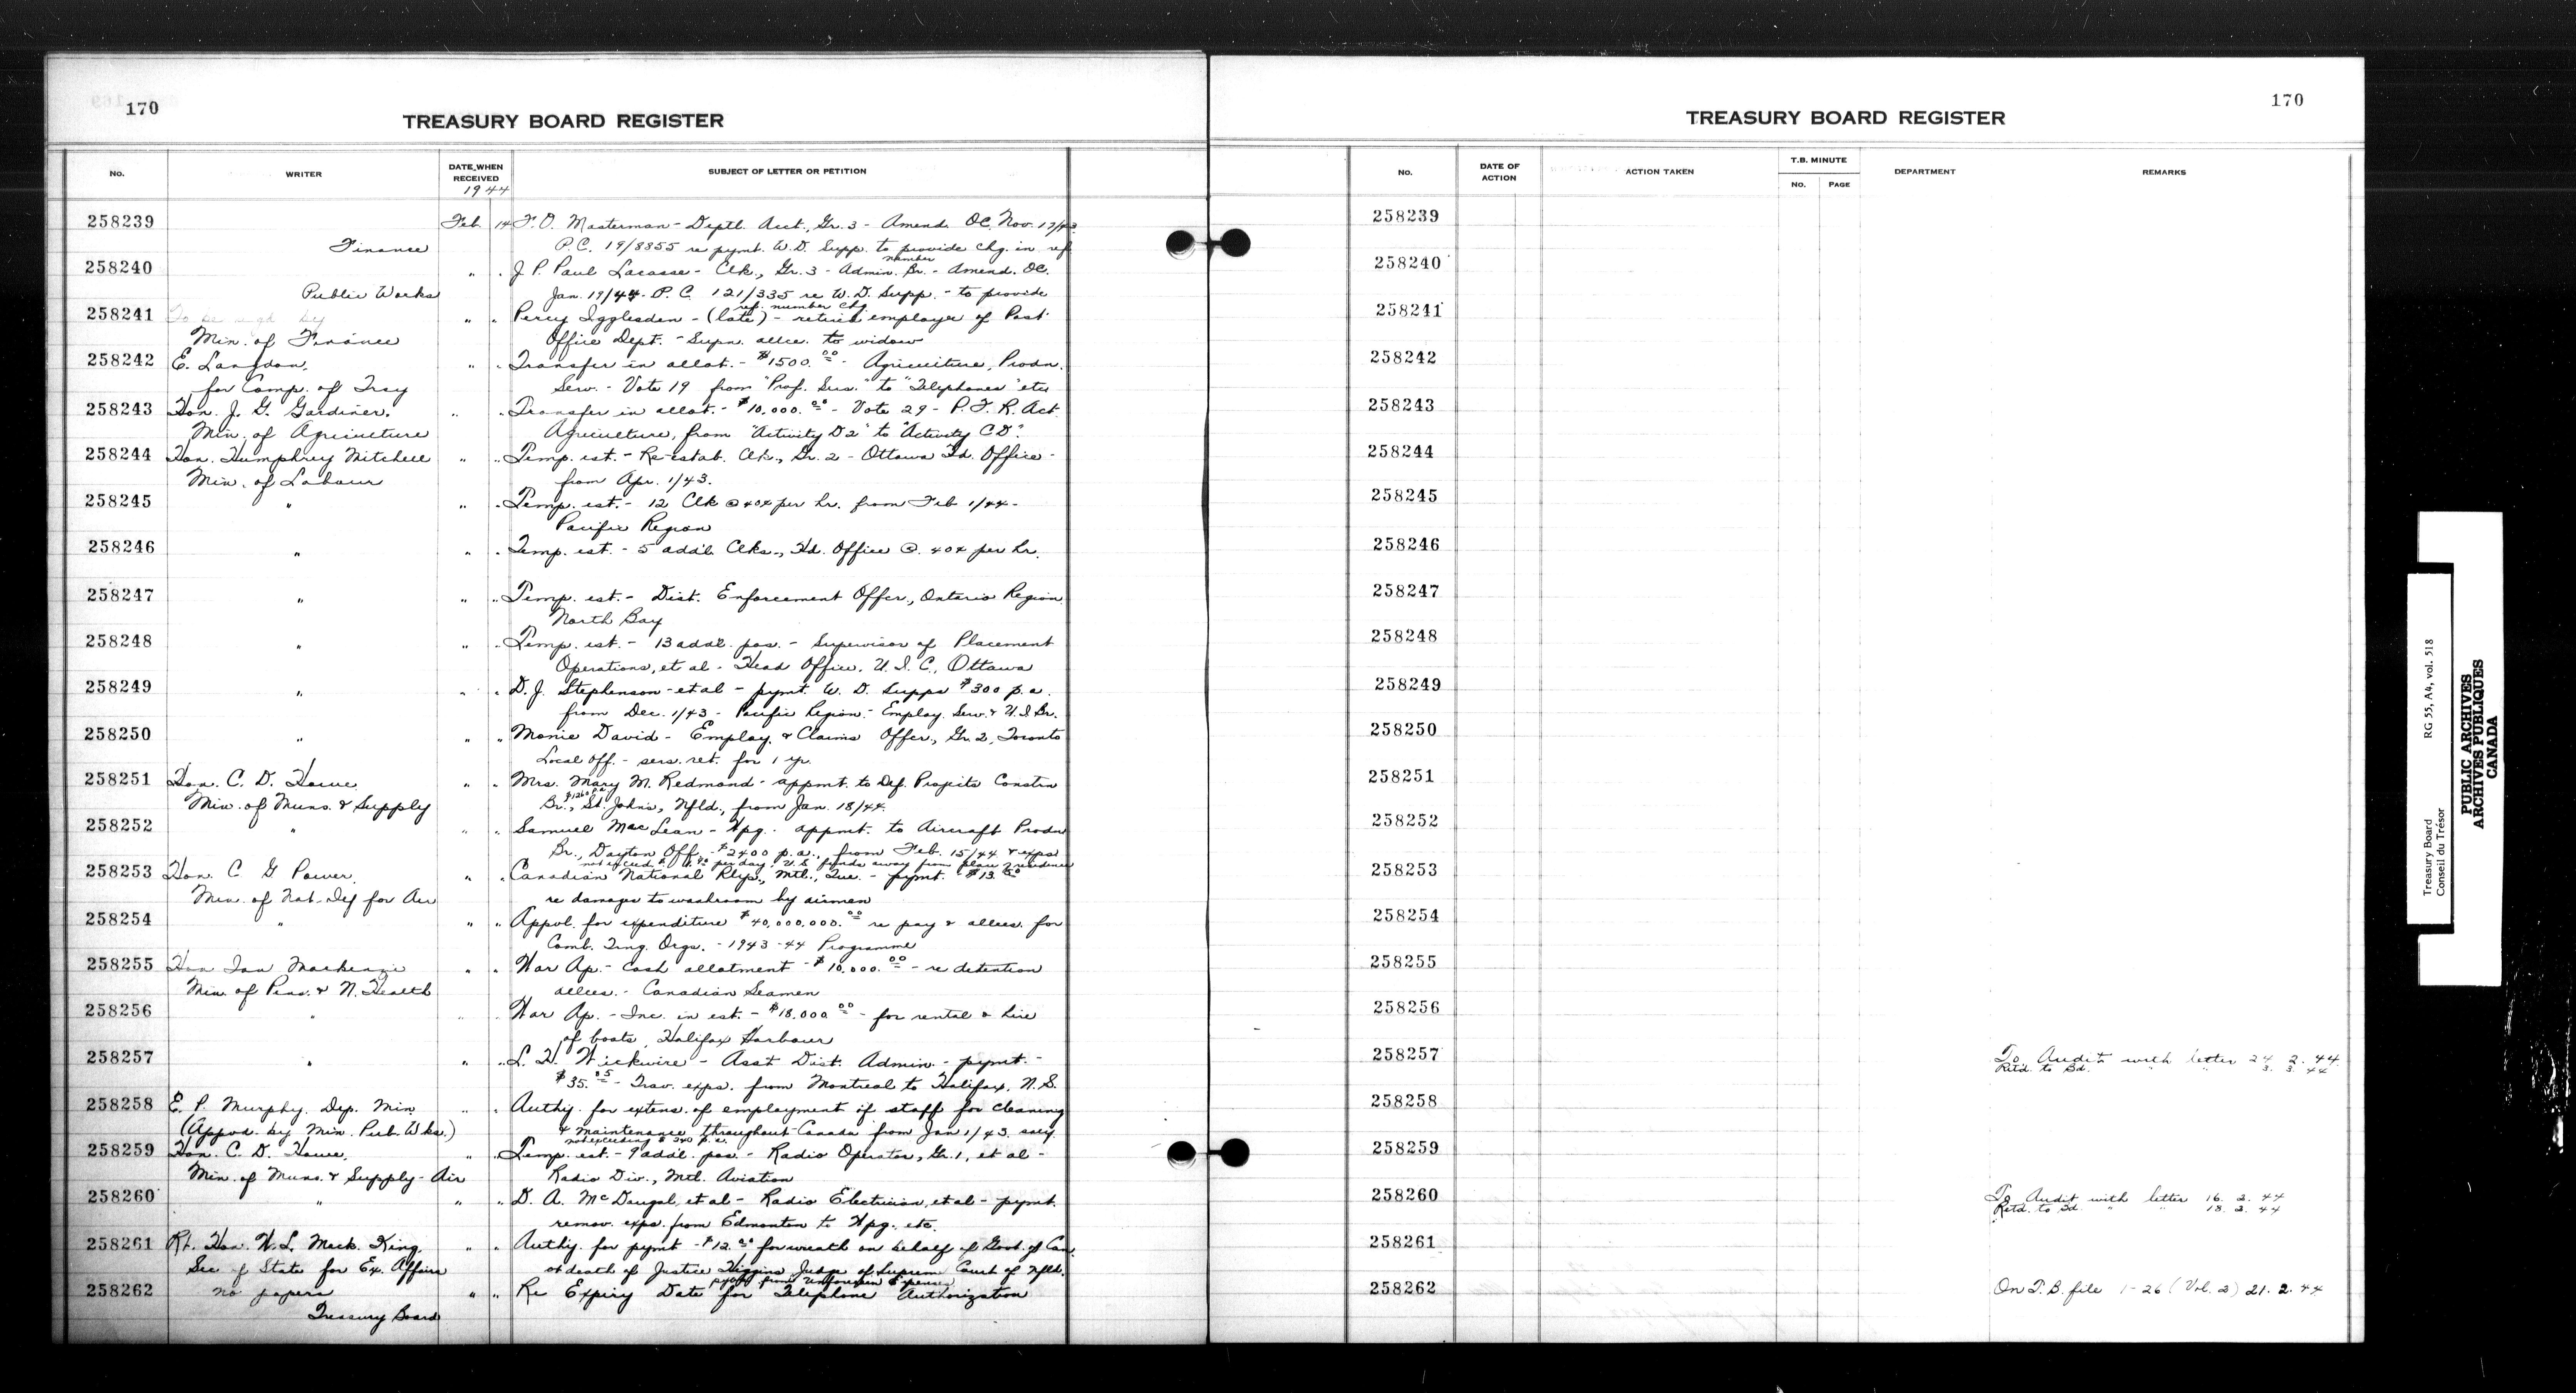 170
TREASURY BOARD REGISTER
No. WRITER DATE WHEN RECEIVED SUBJECT OF LETTER OR PETITION
1944
258239 Feb 14 F. O. Masterman - Deptl. Acct., Gr. 3 - Amend. OC. Nov. 17/43
Finance P.C. 19/8855 re pymt. W.D. Supp. to provide chg. in ref
number
258240 " " J. P. Paul Lacasse - Clk., Gr. 3 - Admin. Br. - Amend. OC.
Public Works Jan. 19/44 - P.C. 121/335 re W.D. Supp. - to provide
ref. number chg.
258241 To be sgd by " " Percy Igglesden - (late) - retired employee of Post
Min. of Finance Office Dept. - Supn. allce. to widow
258242 E. Langdon, " " Transfer in allot. - $1500.00 - Agriculture, Prodn.
for Comp. of Trsy Serv. - Vote 19 from "Prof. Serv." to "Telephones" etc
258243 Hon. J. G. Gardiner, " " Transfer in allot. - $10,000.00 - Vote 29 - P.F.R. Act.
Min. of Agriculture Agriculture, from "Activity D2" to "Activity CD".
258244 Hon. Humphrey Mitchell " " Temp. est. - Re-estab. Clk., Gr. 2 - Ottawa Hd. Office -
Min. of Labour from Apr. 1/43.
258245 " " " Temp. est. - 12 Clk @ 40¢ per hr. from Feb 1/44 -
Pacific Region
258246 " " " Temp. est. - 5 addl. Clks., Hd. Office @ 40¢ per hr.
258247 " " " Temp. est. - Dist. Enforcement Offcr., Ontario Region
North Bay
258248 " " " Temp. est. - 13 addl. pos. - Supervisor of Placement
Operations, et al - Head Office, U.I.C., Ottawa
258249 " " " D. J. Stephenson - et al - pymt. W.D. Supps $300 p.a.
from Dec. 1/43 - Pacific Region - Employ. Serv. & U.I. Br.
258250 " " " David - Employ. & Claims Offcr., Gr. 2, Toronto
Local Off. - serv. ret. for 1 yr.
258251 Hon. C. D. Howe " " Mrs. Mary M. Redmond - appmt. to Def. Projects Constrn
$1260 p.a.
Min. of Muns. & Supply Br., St. John's, Nfld., from Jan. 18/44.
258252 " " " Samuel MacLean - Wpg. - appmt. to Aircraft Prodn
Br., Dayton Off. - $2400 p.a., from Feb. 15/44 & exps
not exceed per day U.S. funds away from place of residence
258253 Hon. C G Power, " " Canadian National Rlys., Mtl., Que. - pymt. $13.50
Min. of Nat. Def for Air re damage to washroom by airmen
258254 " " " Appvl. for expenditure $40,000,000.00 re pay & allces. for
Comb. Trng. Orgs. - 1943-44 Programme
258255 Hon Ian Mackenzie " " War Ap. - Cash allotment - $10,000.00 - re detention
Min. of Pens. & N. Health allces. - Canadian Seamen
258256 " " " War Ap. - Inc. in est. - $18,000.00 - for rental & hire
of boats, Halifax Harbour
258257 " " " L. H. Wickwire - Asst Dist. Admin. - pymt. -
$35. - Trav. exps. from Montreal to Halifax, N.S.
258258 E. P. Murphy, Dep. Min " " Authy. for extens. of employment of staff for cleaning
(Appvd. by Min. Pub. Wks.) & maintenance throughout Canada from Jan 1/43. saly
not exceeding $240 p.a.
258259 Hon. C. D. Howe, " " Temp. est. - 9 addl. pos. - Radio Operator, Gr. 1, et al -
Min. of Muns. & Supply - Air Radio Div., Mtl. Aviation
258260 " " " D. A. McDougal, et al - Radio Electrician, et al - pymt.
remov. exps. from Edmonton to Wpg. etc.
258261 Rt. Hon. W. L. Mack. King, " " Authy. for pymt - $12.00 for wreath on behalf of Govt. of Can.
Sec of State for Ex. Affairs at death of Justice Higgins Judge of Supreme Court of Nfld.
from Unforeseen Expenses
258262 no papers " " Re Expiry Date for Telephone Authorization
Treasury Board
170
TREASURY BOARD REGISTER
No. DATE OF ACTION ACTION TAKEN T.B. MINUTE No. PAGE DEPARTMENT REMARKS
258239
258240
258241
258242
258243
258244
258245
258246
258247
258248
258249
258250
258251
258252
258253
258254
258255
258256
258257 To Audit with letter 24. 2. 44.
Retd. to Bd. " " 3. 3. 44
258258
258259
258260 To Audit with letter 16. 2. 44
Retd. to Bd. " " 18. 2. 44
258261
258262 On T.B. file 1-26 (Vol. 2) 21. 2. 44
Treasury Board RG 55, A4, vol. 518
Conseil du Trésor
PUBLIC ARCHIVES
ARCHIVES PUBLIQUES
CANADA